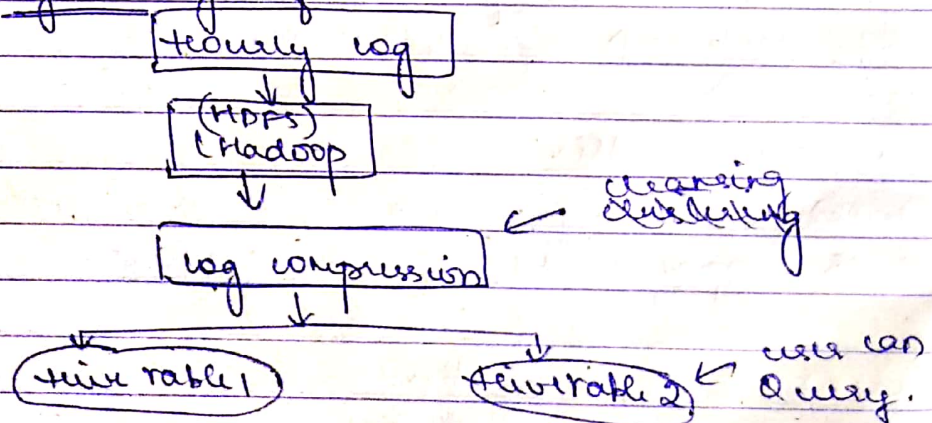 Hourly log
(HDFS)
(Hadoop
cleansing
log compression
Hive Table 1
Hive Table 2
user can
Query.